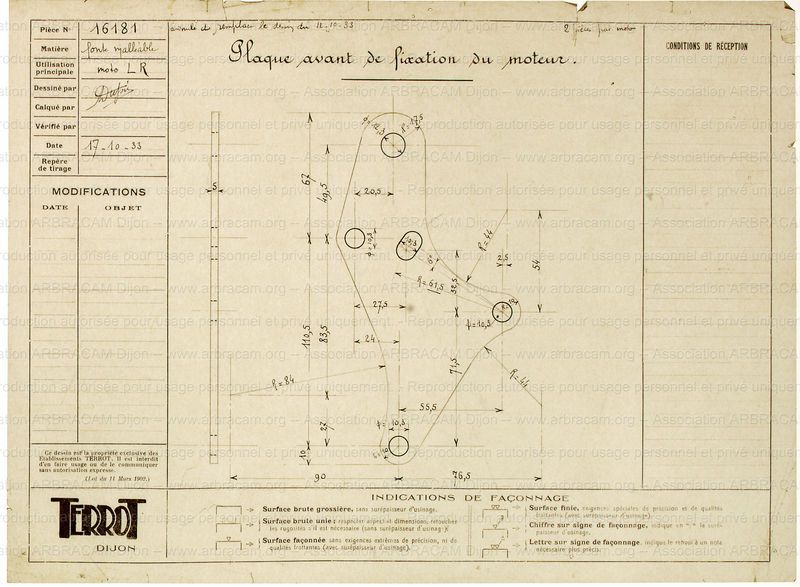 Pièce N° 16181
annule et remplace le dessin du 12-10-33
2 pièces par moto
Matière fonte malléable
Utilisation principale moto LR
Dessiné par
Calqué par
Vérifié par
Date 17-10-33
Repère de tirage
Plaque avant de fixation du moteur.
CONDITIONS DE RÉCEPTION
MODIFICATIONS
DATE OBJET
R=17,5
67
49,5
5
20,5
R=44
2,5
54
R=61,5
32,5
27,5
φ=10,5
110,5
83,5
24
71,5
R=84
R=44
55,5
10,5
27
10
90
76,5
Ce dessin est la propriété exclusive des
Etablissements TERROT. Il est interdit
d'en faire usage ou de le communiquer
sans autorisation expresse.
(Loi du 11 Mars 1902.)
TERROT
DIJON
INDICATIONS DE FAÇONNAGE
Surface brute grossière, sans surépaisseur d'usinage.
Surface brute unie: respecter aspect et dimensions, retouches
les rugosités s'il est nécessaire (sans surépaisseur d'usinage)
Surface façonnée sans exigences extrêmes de précision, ni de
qualités frottantes (avec surépaisseur d'usinage)
Surface finie, exigences spéciales de précision et de qualités
frottantes (avec surépaisseur d'usinage).
Chiffre sur signe de façonnage, indique en la surépaisseur d'usinage.
Lettre sur signe de façonnage, indique le renvoi à un nota
nécessaire plus précis.
www.arbracam.org – Association ARBRACAM Dijon
Reproduction autorisée pour usage personnel et privé uniquement